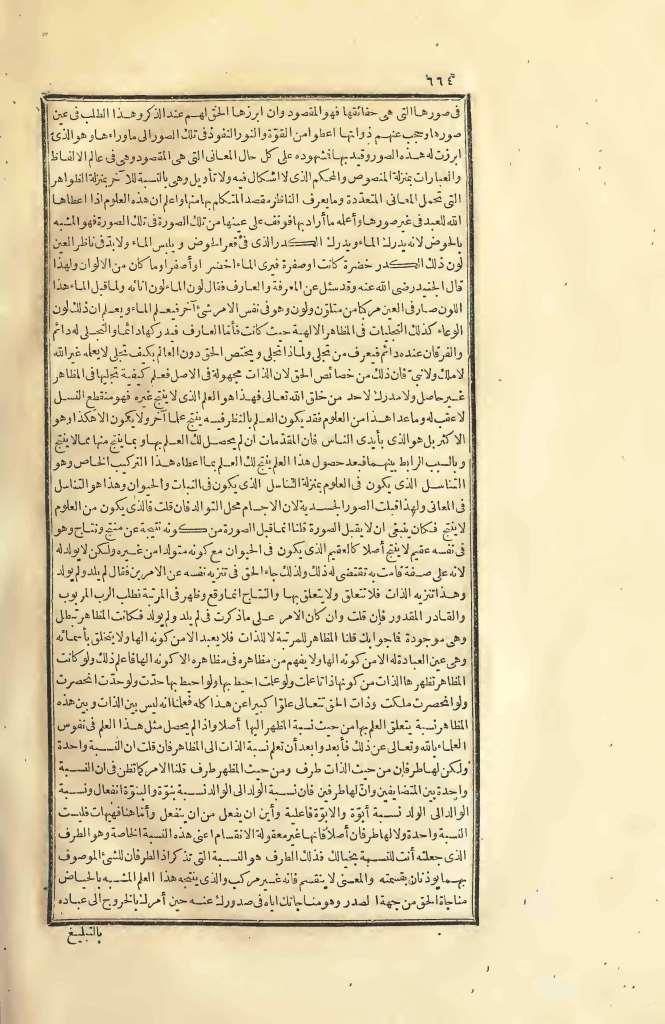 ٦٦٤
فى صورها التى هى حقائقها فهو المقصود وان ابرزها الحق لهم عند الذكر وهذا الطلب فى عين
صورها وحجب عنهم ذواتها اعطوا من القوة والنور النفوذ فى تلك الصور الى ما وراءها وهو الذى
ابرزت له هذه الصور وقيد بها فشهوده على كل حال المعانى التى هى المقصود وهى فى عالم الالفاظ
والعبارات بمنزلة المنصوص والمحكم الذى لا اشكال فيه ولا تأويل وهى بالنسبة للآخر بمنزلة الظواهر
التى تحمل المعانى المتعددة وما يعرف الناظر مقصد المتكلم بها منها واعلم ان هذه العلوم اذا اعطاها
الله للعبد فى غير صورها واعلمه ما أراد بها فوقف على عينها من تلك الصورة فى تلك الصورة فهو المشبه
بالحوض لانه يدرك الماء ويدرك الكدر الذى فى قعر الحوض ويلبس الماء ولا بد فى ناظر العين
لون ذلك الكدر خضرة كانت او صفرة فيرى الماء اخضر او أصفر او ما كان من الالوان ولهذا
قال الجنيد رضى الله عنه وقد سئل عن المعرفة والعارف فقال لون الماء لون انائه ولما قبل الماء هذا
اللون صار فى العين مركبا من متلون ولون وهو فى نفس الامر شئ آخر فيعلم الماء ويعلم ان ذلك لون
الوعاء كذلك التجليات فى المظاهر الالهية حيث كانت فأما العارف فيدركها دائما والتجلى له دائم
والفرقان عنده دائم فيعرف من تجلى ولماذا تجلى ويختص الحق دون العالم بكيف تجلى لا يعلمه غير الله
لا ملك ولا نبى فان ذلك من خصائص الحق لان الذات مجهولة فى الاصل فعلم كيفية تجليها فى المظاهر
غير حاصل ولا مدرك لاحد من خلق الله تعالى فهذا هو العلم الذى لا ينتج غيره فهو منقطع النسل
لا عقب له وما عدا هذا من العلوم فقد يكون العلم بالنظر فيه ينتج علما آخر ولا يكون الا هكذا وهو
الاكثر بل هو الذى بأيدى الناس فان المقدمات ان لم يحصل لك العلم بها وبما ينتج منها مما لا ينتج
وبالسبب الرابط بينهما فبعد حصول هذا العلم ينتج لك العلم بما اعطاه هذا التركيب الخاص وهو
التناسل الذى يكون فى العلوم بمنزلة التناسل الذى يكون فى النبات والحيوان وهذا هو التناسل
فى المعانى ولهذا قبلت الصور الجسدية لان الاجسام محل التوالد فان قلت فالذى يكون من العلوم
لا ينتج فكان ينبغى ان لا يقبل الصورة قلنا انما قبل الصورة من كونه نتيجة عن منتج ونتاج وهو
فى نفسه عقيم لا ينتج أصلا كالعقيم الذى يكون فى الحيوان مع كونه متولدا من غيره ولكن لا يولد له
لانه على صفة قامت به تقتضى له ذلك ولذلك جاء الحق فى تنزيه نفسه عن الامرين فقال لم يلد ولم يولد
وهذا تنزيه الذات فلا تتعلق ولا يتعلق بها والنتاج انما وقع وظهر فى المرتبة فطلب الرب المربوب
والقادر المقدور فإن قلت وان كان الامر على ما ذكرت فى لم يلد ولم يولد فكانت المظاهر تبطل
وهى موجودة فما جوابك قلنا المظاهر للمرتبة لا للذات فلا يعبد الا من كونه الها ولا يتخلق بأسمائه
وهى عين العبادة له الا من كونه الها ولا يفهم من مظاهره فى مظاهره الا كونه الها فاعلم ذلك ولو كانت
المظاهر تظهرها الذات من كونها ذاتا علمت ولو علمت احيط بها ولو احيط بها حدت ولو حدت انحصرت
ولو انحصرت ملكت وذات الحق تتعالى علوا كبيرا عن هذا كله فعلمنا انه ليس بين الذات وبين هذه
المظاهر نسبة يتعلق العلم بها من حيث نسبة المظهر اليها أصلا واذا لم يحصل مثل هذا العلم فى نفوس
العلماء بالله وتعالى عن ذلك فأبعد وابعد أن تعلم نسبة الذات الى المظاهر فان قلت ان النسبة واحدة
ولكن لها طرفان من حيث الذات طرف ومن حيث المظهر طرف قلنا الامر كما تظن فى ان النسبة
واحدة بين المتضايفين وان لها طرفين فان نسبة الولد الى الوالد نسبة بنوة والبنوة انفعال ونسبة
الوالد الى الولد نسبة أبوة والابوة فاعلية وأين ان يفعل من ان ينفعل وأما هنا فهيهات فليست
النسبة واحدة ولا لها طرفان أصلا فانها غير معقولة الانقسام اعنى هذه النسبة الخاصة وهو الطرف
الذى جعلته أنت للنسبة بخيالك فذلك الطرف هو النسبة التى تذكر اذ الطرفان للشئ الموصوف
بهما يؤذنان بقسمته والمعنى لا ينقسم فانه غير مركب والذى ينتجه هذا العلم المشبه بالحياض
مناجاة الحق من جهة الصدر وهو مناجاتك اياه فى صدورك عنه حين أمرك بالخروج الى عباده
بالتبليغ